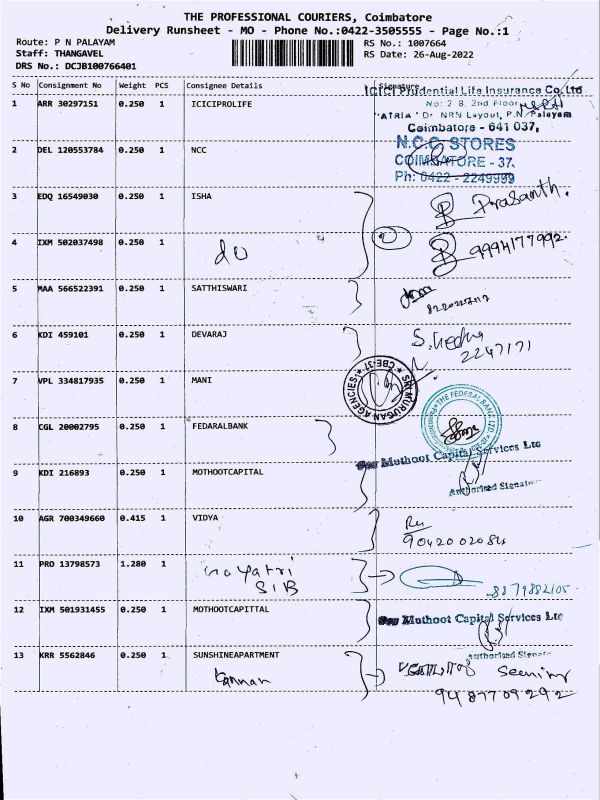 THE PROFESSIONAL COURIERS, Coimbatore
Delivery Runsheet - MO - Phone No.:0422-3505555 - Page No.:1
Route: P N PALAYAM RS No.: 1007664
Staff: THANGAVEL RS Date: 26-Aug-2022
DRS No.: DCJB100766401
S No Consignment No Weight PCS Consignee Details Signature
1 ARR 30297151 0.250 1 ICICIPROLIFE
ICICI Prudential Life Insurance Co. Ltd
No: 2 8, 2nd Floor
"ATRIA" Dr NRN Layout, P.N. Palayam
Coimbatore - 641 037,
2 DEL 120553784 0.250 1 NCC
N.C.C. STORES
COIMBATORE - 37.
Ph: 0422 - 2249999
3 EDQ 16549030 0.250 1 ISHA Prasanth.
4 IXM 502037498 0.250 1 do 9994177992.
5 MAA 566522391 0.250 1 SATTHISWARI
6 KDI 459101 0.250 1 DEVARAJ
2247171
7 VPL 334817935 0.250 1 MANI
SRI MURUGAN AGENCIES * CBE-37 *
8 CGL 20002795 0.250 1 FEDARALBANK
THE FEDERAL BANK LTD.
For Muthoot Capital Services Ltd
9 KDI 216893 0.250 1 MOTHOOTCAPITAL
Authorised Signato
10 AGR 700349660 0.415 1 VIDYA
9042002084
11 PRO 13798573 1.280 1 Gayatri
SIB
8879882105
12 IXM 501931455 0.250 1 MOTHOOTCAPITTAL
For Muthoot Capital Services Ltd
Authorised Signato
13 KRR 5562846 0.250 1 SUNSHINEAPARTMENT
Kannan
9487709292